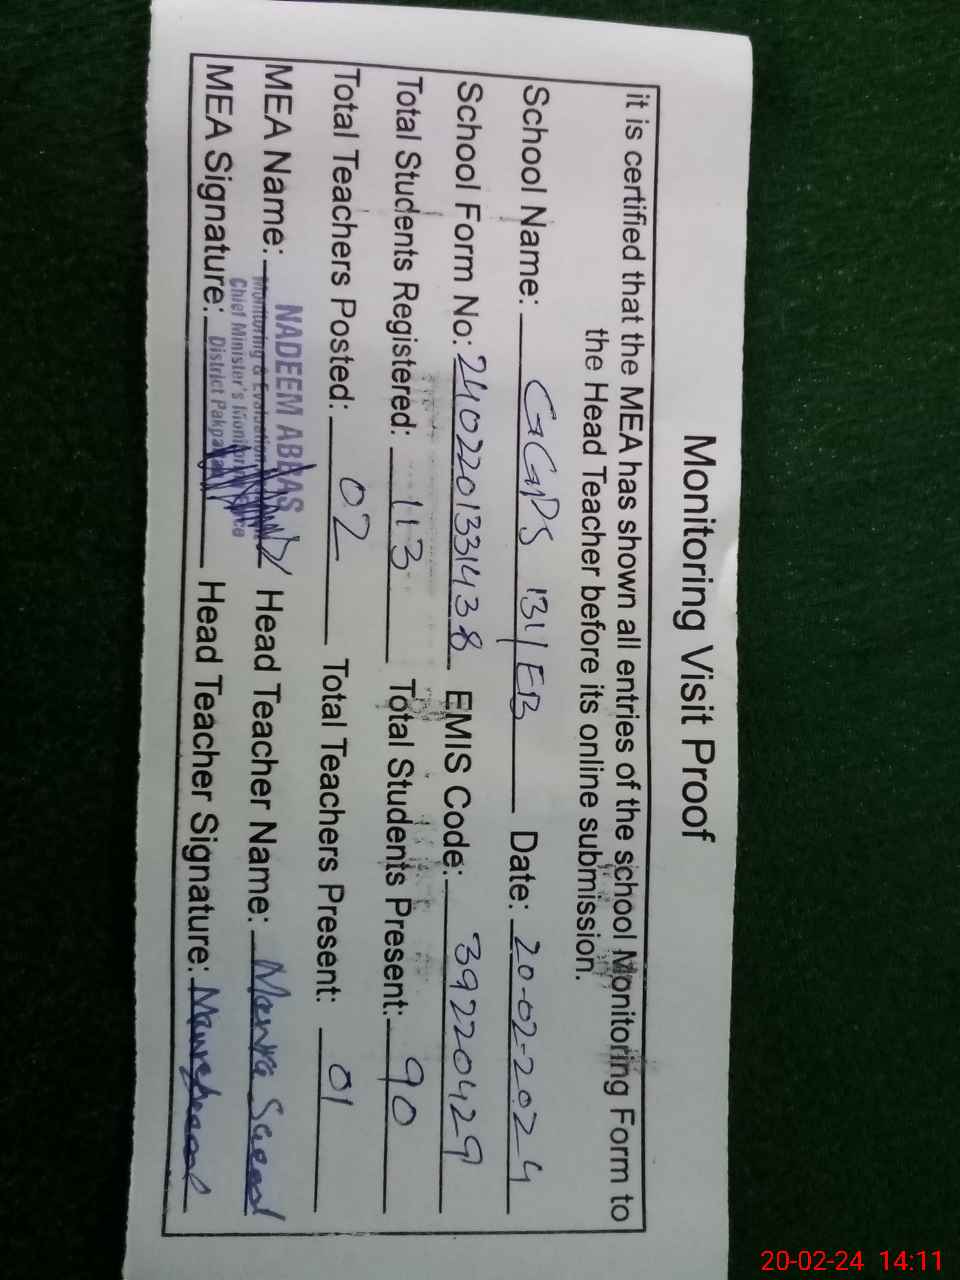 Monitoring Visit Proof
it is certified that the MEA has shown all entries of the school Monitoring Form to
the Head Teacher before its online submission.
School Name: GGPS 131/EB Date: 20-02-2024
School Form No: 2402201331438 EMIS Code: 39220429
Total Students Registered: 113 Total Students Present: 90
Total Teachers Posted: 02 Total Teachers Present: 01
MEA Name: NADEEM ABBAS Head Teacher Name: Saeed
Monitoring & Evaluation
Chief Minister's Monitoring
District Pakpattan
MEA Signature: Head Teacher Signature:
20-02-24 14:11